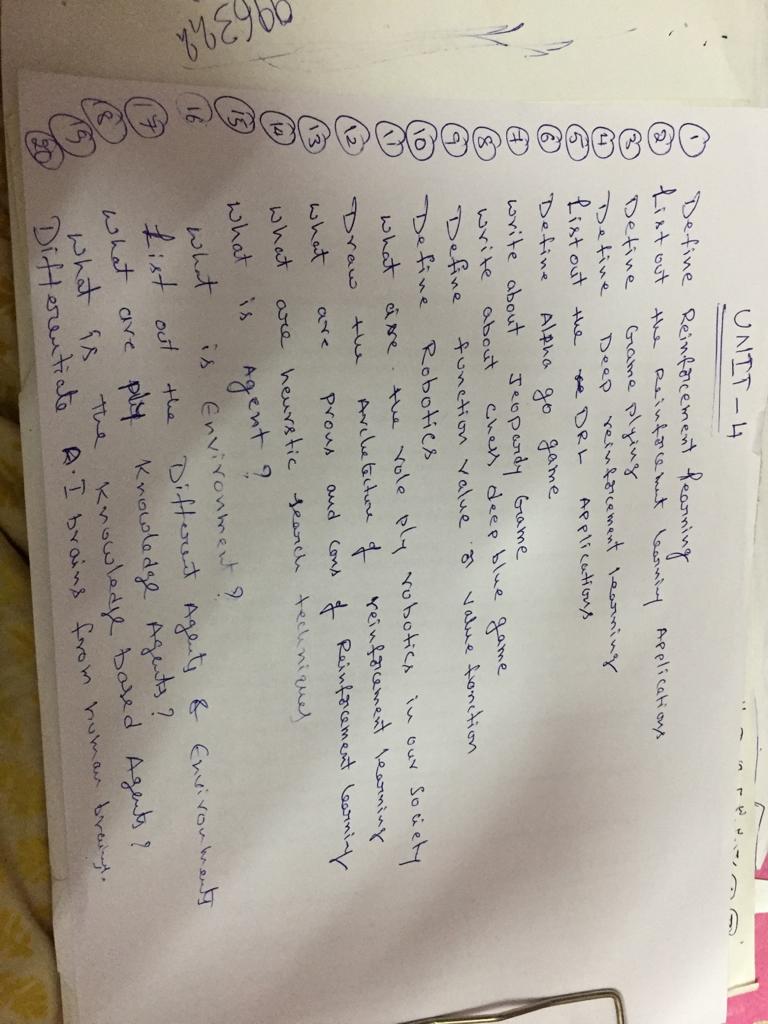 UNIT-4
1 Define Reinforcement learning
2 List out the Reinforcement learning Applications
3 Define Game plying
4 Define Deep reinforcement learning
5 List out the DRL Applications
6 Define Alpha go game
7 write about Jeopardy Game
8 write about chess deep blue game
9 Define function value or value function
10 Define Robotics
11 what are the role ply robotics in our society
12 Draw the Archetecture of reinforcement learning
13 what are prous and cons of Reinforcement learning
14 what are heurstic search techniques
15 what is Agent?
16 what is Environment?
17 List out the Different Agents & Environments
18 what are Knowledge Agents?
19 what is the knowledge based Agents?
20 Differentiate A.I brains from human brains.
99639